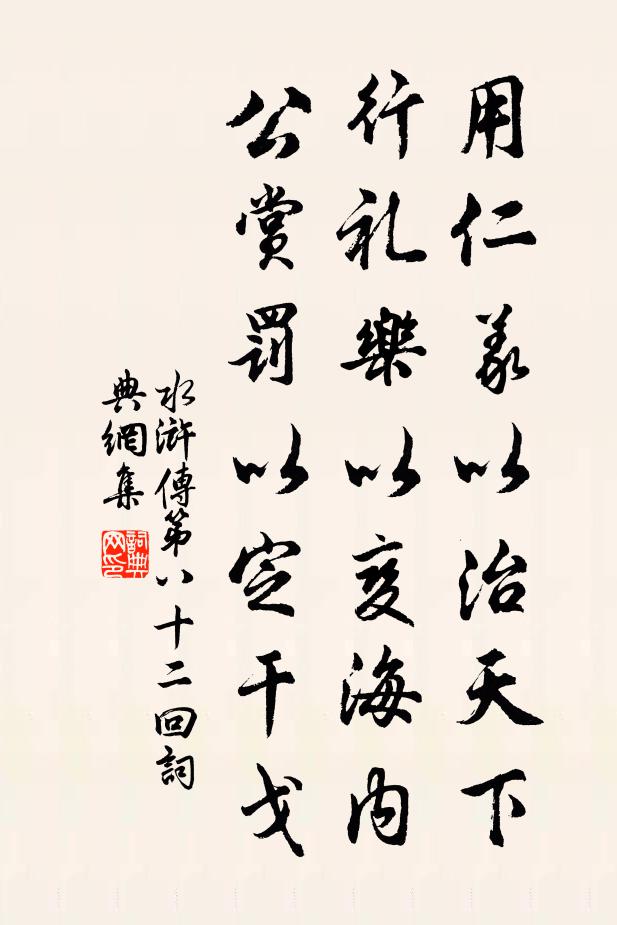 用仁義以治天下
行礼樂以变海内
公赏罰以定干戈
水滸傳第八十二回詞
典網集
詞典
网印